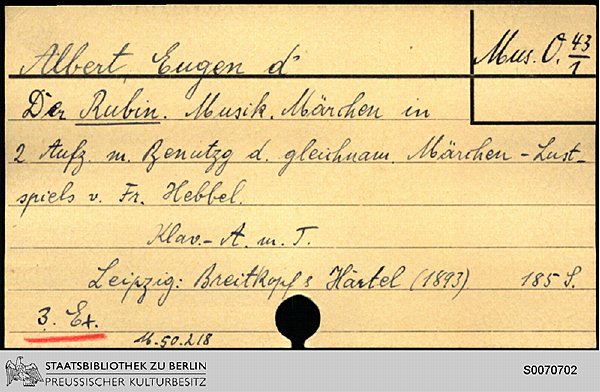 Albert, Eugen d'
Mus. O. 43/1
Der Rubin. Musik. Märchen in
2 Aufz m. Benutzg d. gleichnam. Märchen-Lust-
spiels v. Fr. Hebbel.
Klav.-A. m. T.
Leipzig: Breitkopf & Härtel (1893) 185 S.
3. Ex.
M.50.218
STAATSBIBLIOTHEK ZU BERLIN
PREUSSISCHER KULTURBESITZ
S0070702